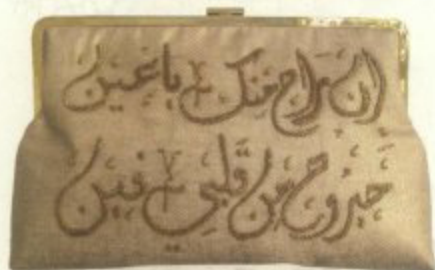 ان راح منك يا عين
حيروح من قلبي فين